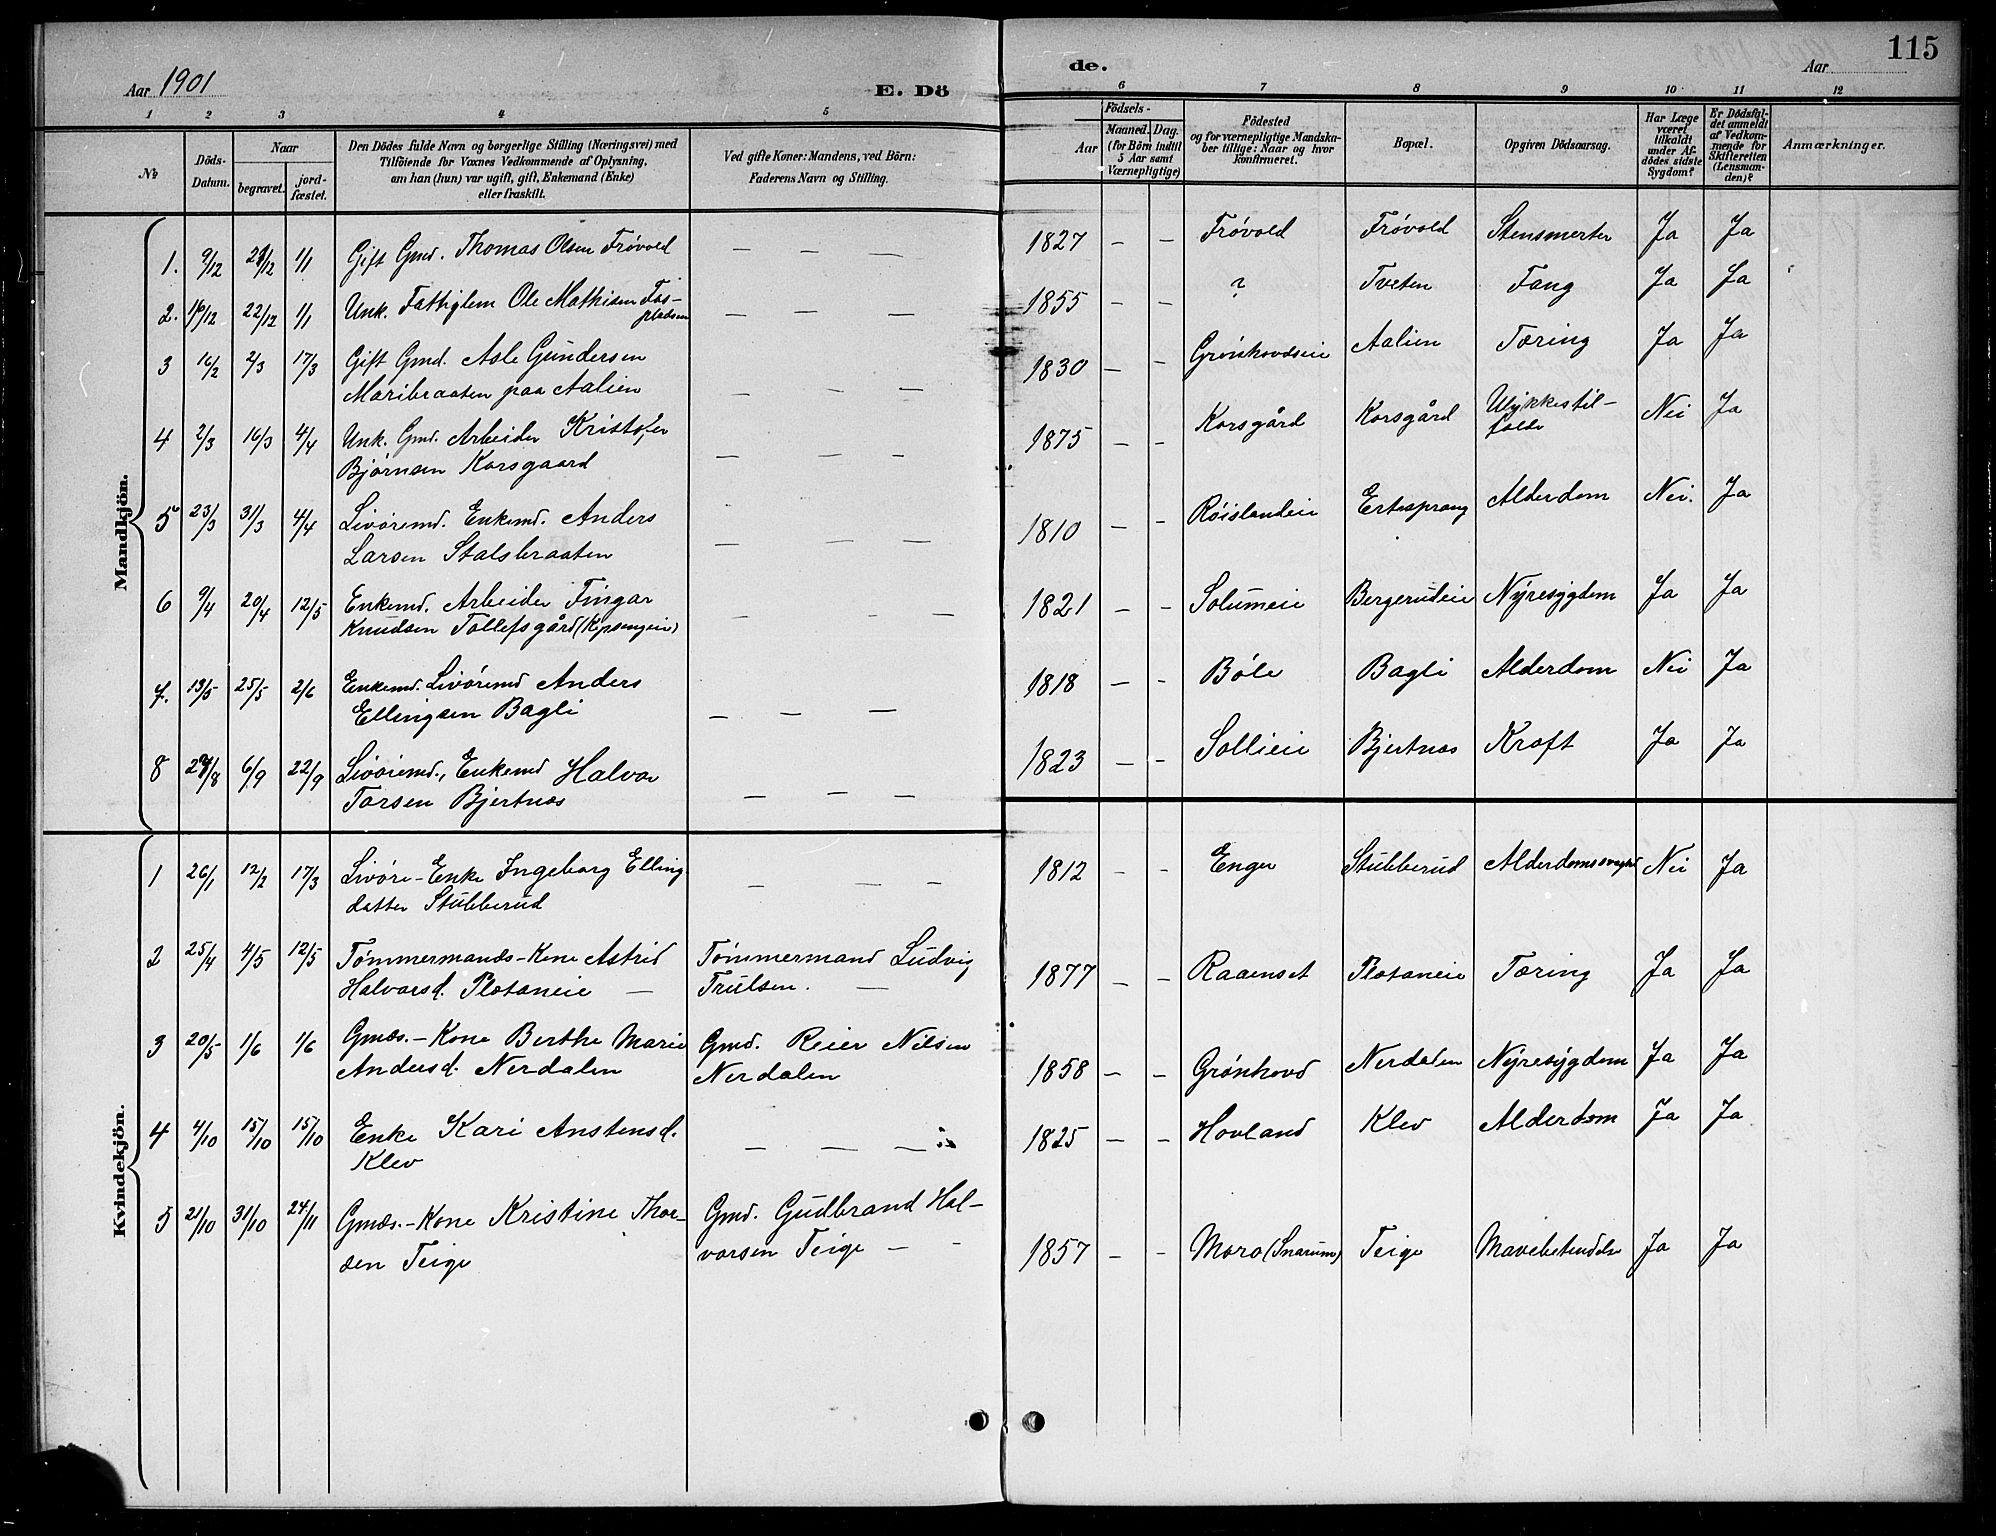 Aar 1901
E. Dö
de.
Aar
115
1 2 3 4 5 6 7 8 9 10 11 12
№
Döds-
Datum.
Naar
begravet.
jord-
fæstet.
Den Dödes fulde Navn og borgerlige Stilling (Næringsvei) med
Tilföiende for Voxnes Vedkommende af Oplysning,
om han (hun) var ugift, gift, Enkemand (Enke)
eller fraskilt.
Ved gifte Koner: Mandens, ved Börn:
Faderens Navn og Stilling.
Födsels-
Aar
Maaned. Dag.
(for Börn indtil
5 Aar samt
Værnepligtige)
Födested
og for værnepligtige Mandska-
ber tillige: Naar og hvor
konfirmeret.
Bopæl.
Opgiven Dödsaarsag.
Har Læge
været
tilkaldt
under Af-
dödes sidste
Sygdom?
Er Dödsfal-
det anmeldt
af Vedkom-
mende for
Skifteretten
(Lensman-
den)?
Anmærkninger.
Mandkjön.
1. 9/12 21/12 1/1 Gift Gmd. Thomas Olsen Frövold — — — 1827 — — Frövold Frövold Stensmerter Ja Ja
2. 16/12 22/12 1/1 Unk. Fattiglem Ole Mathisen Fos-
pladsen — — — 1855 — — ? Tveten Fang Ja Ja
3 16/2 2/3 17/3 Gift Gmd. Asle Gundersen
Maribraaten paa Aalien — — — 1830 — — Grönhovdseie Aalien Tæring Ja Ja
4 2/3 16/3 4/4 Unk. Gmd. Arbeider Kristofer
Björnsen Korsgaard — — — 1875 — — Korsgård Korsgård Ulykkestil-
fælde Nei Ja
5 23/3 31/3 4/4 Livöremd. Enkemd. Anders
Larsen Stalsbraaten — — — 1810 — — Röislandeie Ertesprang Alderdom Nei. Ja
6 9/4 20/4 12/5 Enkemd. Arbeider Fingar
Knudsen Tollefsgård (Kipsengeie) — — — 1821 — — Solumeie Bergerudeie Nyresygdom Ja Ja
7. 13/5 25/5 2/6 Enkemd. Livöremd Anders
Ellingsen Bagli — — — 1818 — — Böle Bagli Alderdom Nei Ja
8 28/8 6/9 22/9 Livöremd., Enkemd Halvor
Torsen Bjertnæs — — — 1823 — — Sollieie Bjertnæs Kræft Ja Ja
Kvindekjön.
1 26/1 12/2 17/3 Livöre-Enke Ingeborg Elling
datter Stubberud — — — 1812 — — Enger Stubberud Alderdomssvaghd Nei Ja
2 25/4 4/5 12/5 Tømmermands-Kone Astrid
Halvorsd. Plataneie —
Tømmermand Ludvig
Trulsen. — 1877 — — Raaenset Plataneie Tæring Ja Ja
3 20/5 1/6 1/6 Gmds.-Kone Berthe Marie
Andersd. Nerdalen
Gmd. Reier Nilsen
Nerdalen 1858 — — Grönhovd Nerdalen Nyresygdom Ja Ja
4 4/10 15/10 15/10 Enke Kari Anstensd.
Klev — — — 1825 — — Hovland Klev Alderdom Ja Ja
5 21/10 31/10 24/11 Gmds.-Kone Kristine Thor-
sen Teige
Gmd. Gudbrand Hal-
vorsen Teige — — 1857 — — Moro (Snarum) Teige Mavebetændelse Ja Ja